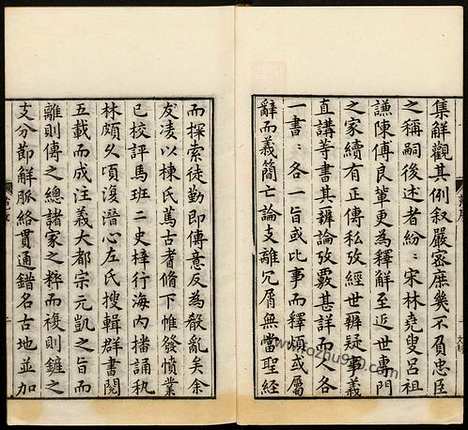 集解觀其例叙嚴密庶幾不負忠臣
之稱嗣後述者紛〻宋林堯叟呂祖
謙陳傅良輩更為釋解元趙汸
之家續有正傳私攷經世辨疑事義
直講等書其辨論攷覈甚詳而人各
一書〻各一旨或比事而釋煩或屬
辭而義簡亡論支離冗屑無當聖經
而探索徒勤即傳意反為殽亂矣余
友凌以棟氏篤古耆脩下帷發憤業
已校評馬班二史梓行海內播誦秇
林頗乆頃復溍心左氏搜輯群書閱
五載而成注義大都宗元凱之旨而
離則傳之總諸家之粹而複則鏟之
支分節解脈絡貫通錯名古地並加